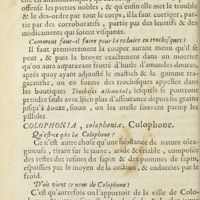 offense les parties nobles, & qu'enfin elle met le trouble
& le des-ordre par tout le corps, il a falu corriger, par-
tie par des corroboratifs, partie par des lenitifs & des
medicamens qui soient visqueux.
Comment faut-il faire pour la reduire en trochisques?
Il faut premierement la couper autant menu qu'il se
peut, & puis la broyer exactement dans un mortier
qu'on aura auparavant frotté d'huile d'amandes douces,
aprés quoy ayant adjousté le mastich & la gomme tra-
gacanthe, on en forme des trochisques appellez dans
les boutiques Trochisci alhandal, lesquels se pouvant
prendre sans avec bien plus d'asseurance depuis six grains
jusqu'à douze, sinon, on les mesle souvent parmy les
pillules.
COLOPHONIA, colophoniæ, Colophone.
Qu'est-ce que la Colophone?
Ce n'est autre chose qu'une substance de nature olea-
gineuse, tirant sur le jaune, aride & friable, composée
des restes des resines du sapin & des pommes de sapin,
espaissies par le moyen de la coction, & endurcies par le
froid.
D'où vient ce nom de Colophone?
C'est qu'autrefois on l'apportoit de la ville de Colo-